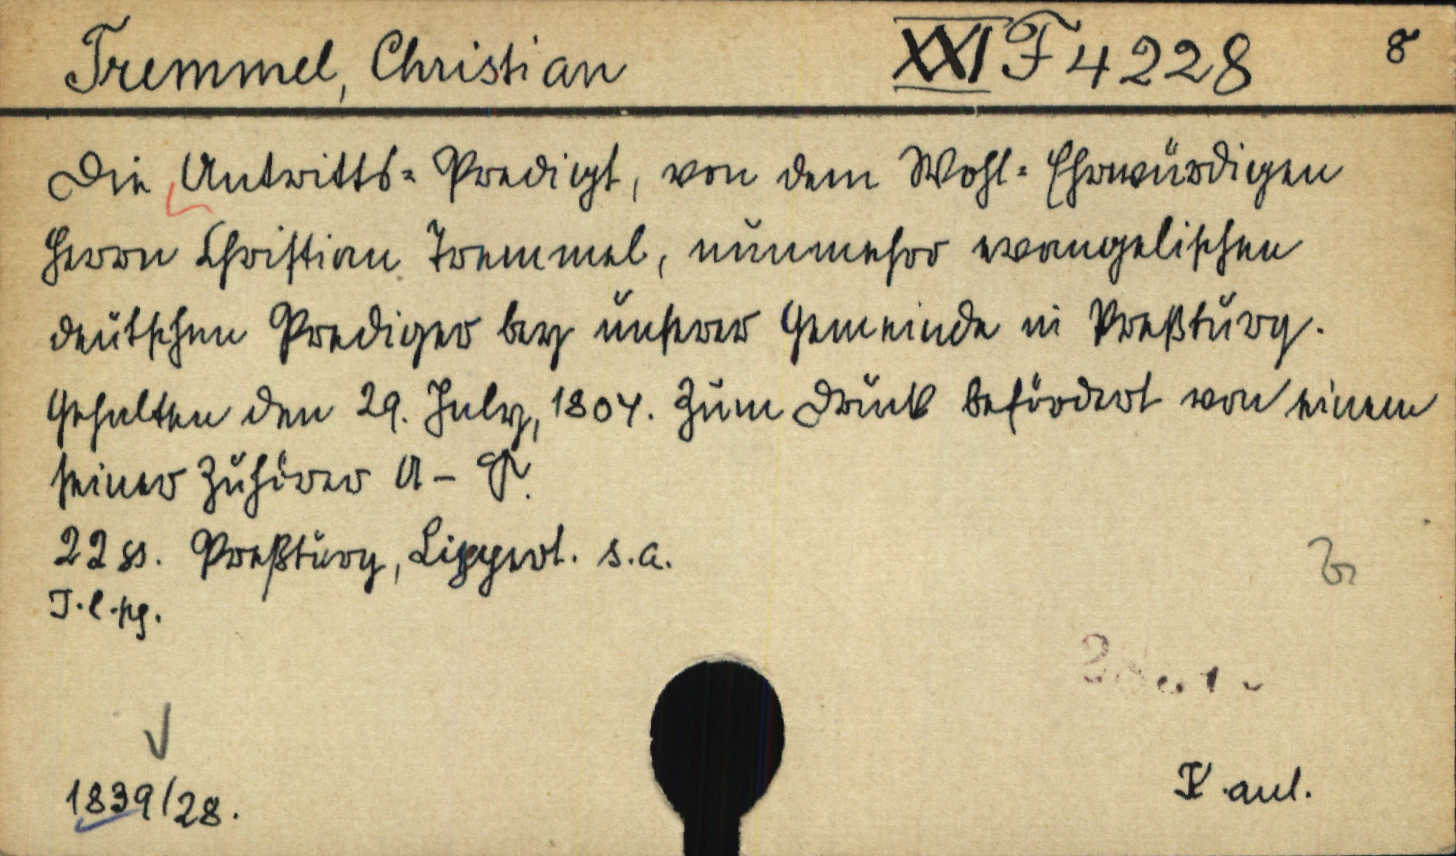 Tremmel, Christian XXI F 4228 8
Die Antritts-Predigt, von dem Wohl-Ehrwürdigen
Herrn Christian Tremmel, nunmehro evangelischen
deutschen Prediger bey unserer Gemeinde in Preßburg.
Gehalten den 29. July, 1804. Zum Druck befördert von einem
seiner Zuhörer A - P.
22 ss. Preßburg, Lippert. s.a.
1839/28.